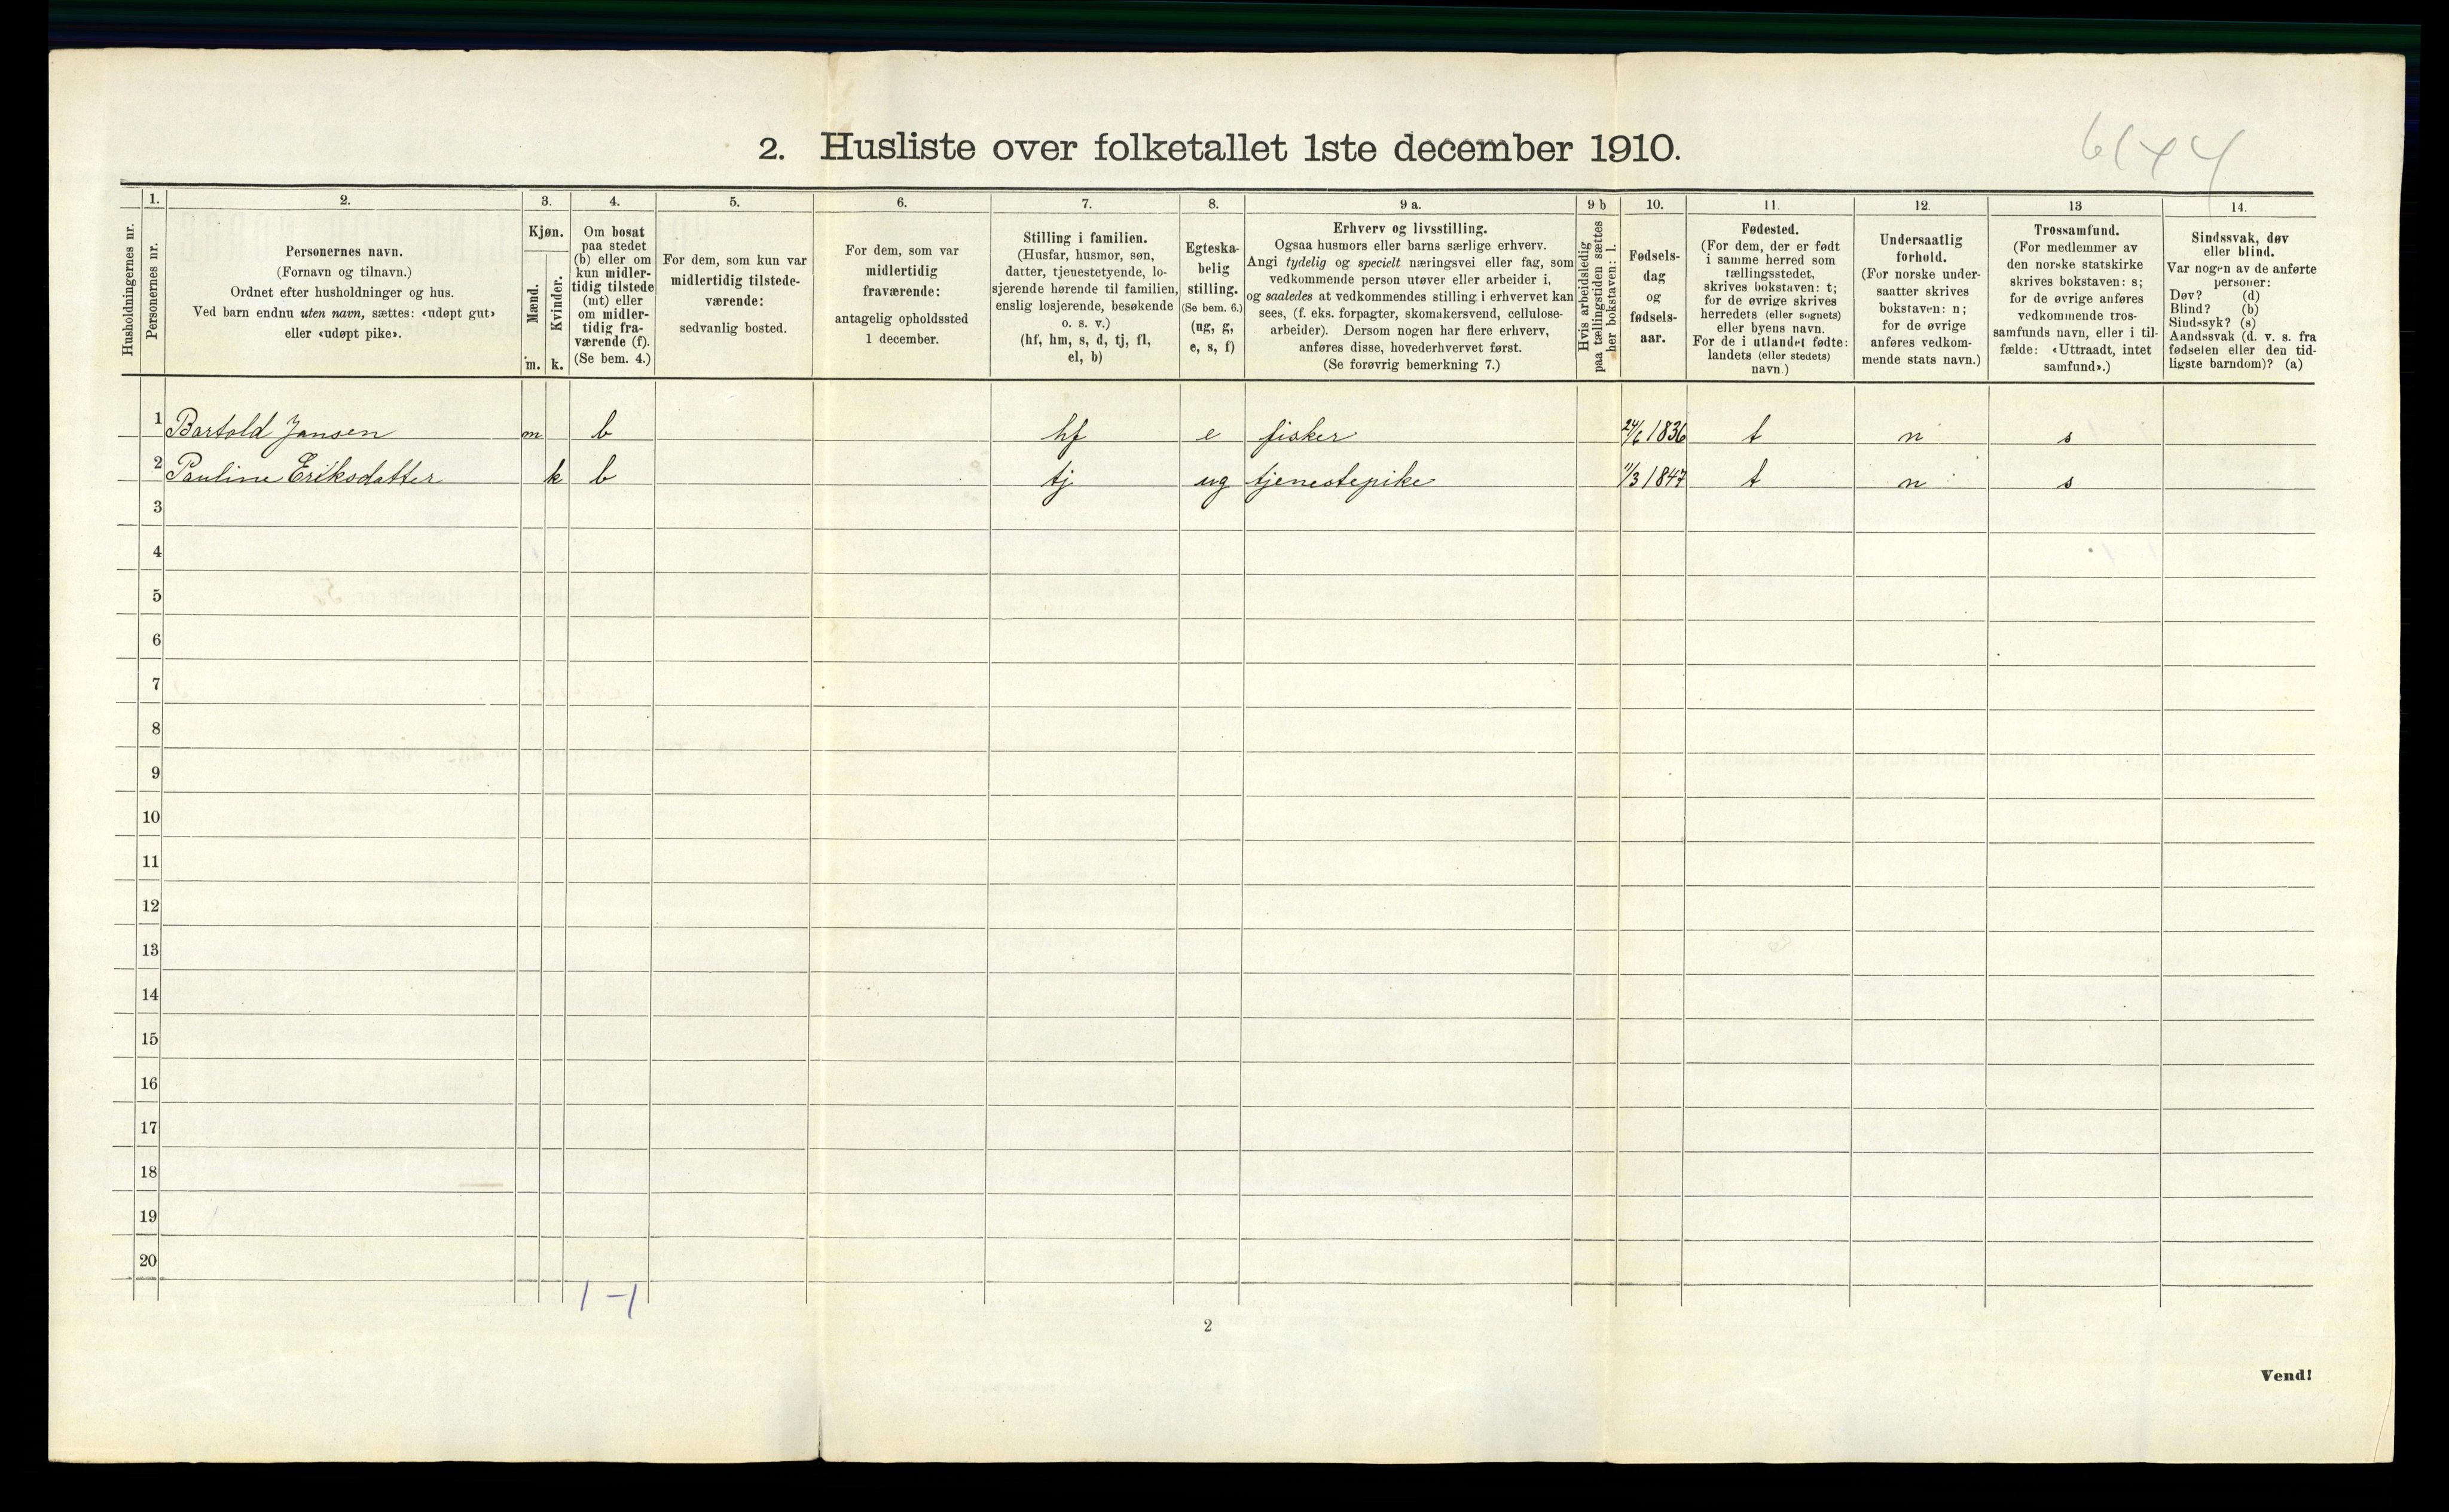 2. Husliste over folketallet 1ste december 1910.
Husholdningernes nr.
1.
Personernes nr.
2.
Personernes navn.
(Fornavn og tilnavn.)
Ordnet efter husholdninger og hus.
Ved barn endnu uten navn, sættes: «udøpt gut»
eller «udøpt pike».
3.
Kjøn.
Mænd.
m.
Kvinder.
k.
4.
Om bosat
paa stedet
(b) eller om
kun midler-
tidig tilstede
(mt) eller
om midler-
tidig fra-
værende (f).
(Se bem. 4.)
5.
For dem, som kun var
midlertidig tilstede-
værende:
sedvanlig bosted.
6.
For dem, som var
midlertidig
fraværende:
antagelig opholdssted
1 december.
7.
Stilling i familien.
(Husfar, husmor, søn,
datter, tjenestetyende, lo-
sjerende hørende til familien,
enslig losjerende, besøkende
o. s. v.)
(hf, hm, s, d, tj, fl,
el, b)
8.
Egteska-
belig
stilling.
(Se bem. 6.)
(ug, g,
e, s, f)
9 a.
Erhverv og livsstilling.
Ogsaa husmors eller barns særlige erhverv.
Angi tydelig og specielt næringsvei eller fag, som
vedkommende person utøver eller arbeider i,
og saaledes at vedkommendes stilling i erhvervet kan
sees, (f. eks. forpagter, skomakersvend, cellulose-
arbeider). Dersom nogen har flere erhverv,
anføres disse, hovederhvervet først.
(Se forøvrig bemerkning 7.)
9 b
Hvis arbeidsledig
paa tællingstiden sættes
her bokstaven: l.
10.
Fødsels-
dag
og
fødsels-
aar.
11.
Fødested.
(For dem, der er født
i samme herred som
tællingsstedet,
skrives bokstaven: t;
for de øvrige skrives
herredets (eller sognets)
eller byens navn.
For de i utlandet fødte:
landets (eller stedets)
navn.)
12.
Undersaatlig
forhold.
(For norske under-
saatter skrives
bokstaven: n;
for de øvrige
anføres vedkom-
mende stats navn.)
13
Trossamfund.
(For medlemmer av
den norske statskirke
skrives bokstaven: s;
for de øvrige anføres
vedkommende tros-
samfunds navn, eller i til-
fælde: «Uttraadt, intet
samfund».)
14.
Sindssvak, døv
eller blind.
Var nogen av de anførte
personer:
Døv? (d)
Blind? (b)
Sindssyk? (s)
Aandssvak (d. v. s. fra
fødselen eller den tid-
ligste barndom)? (a)
1 Bartold Jansen m b hf e fisker 24/6 1836 t n s
2 Pauline Eriksdatter k b tj ug tjenestepike 11/3 1847 t n s
3
4
5
6
7
8
9
10
11
12
13
14
15
16
17
18
19
20
1-1
2
Vend!